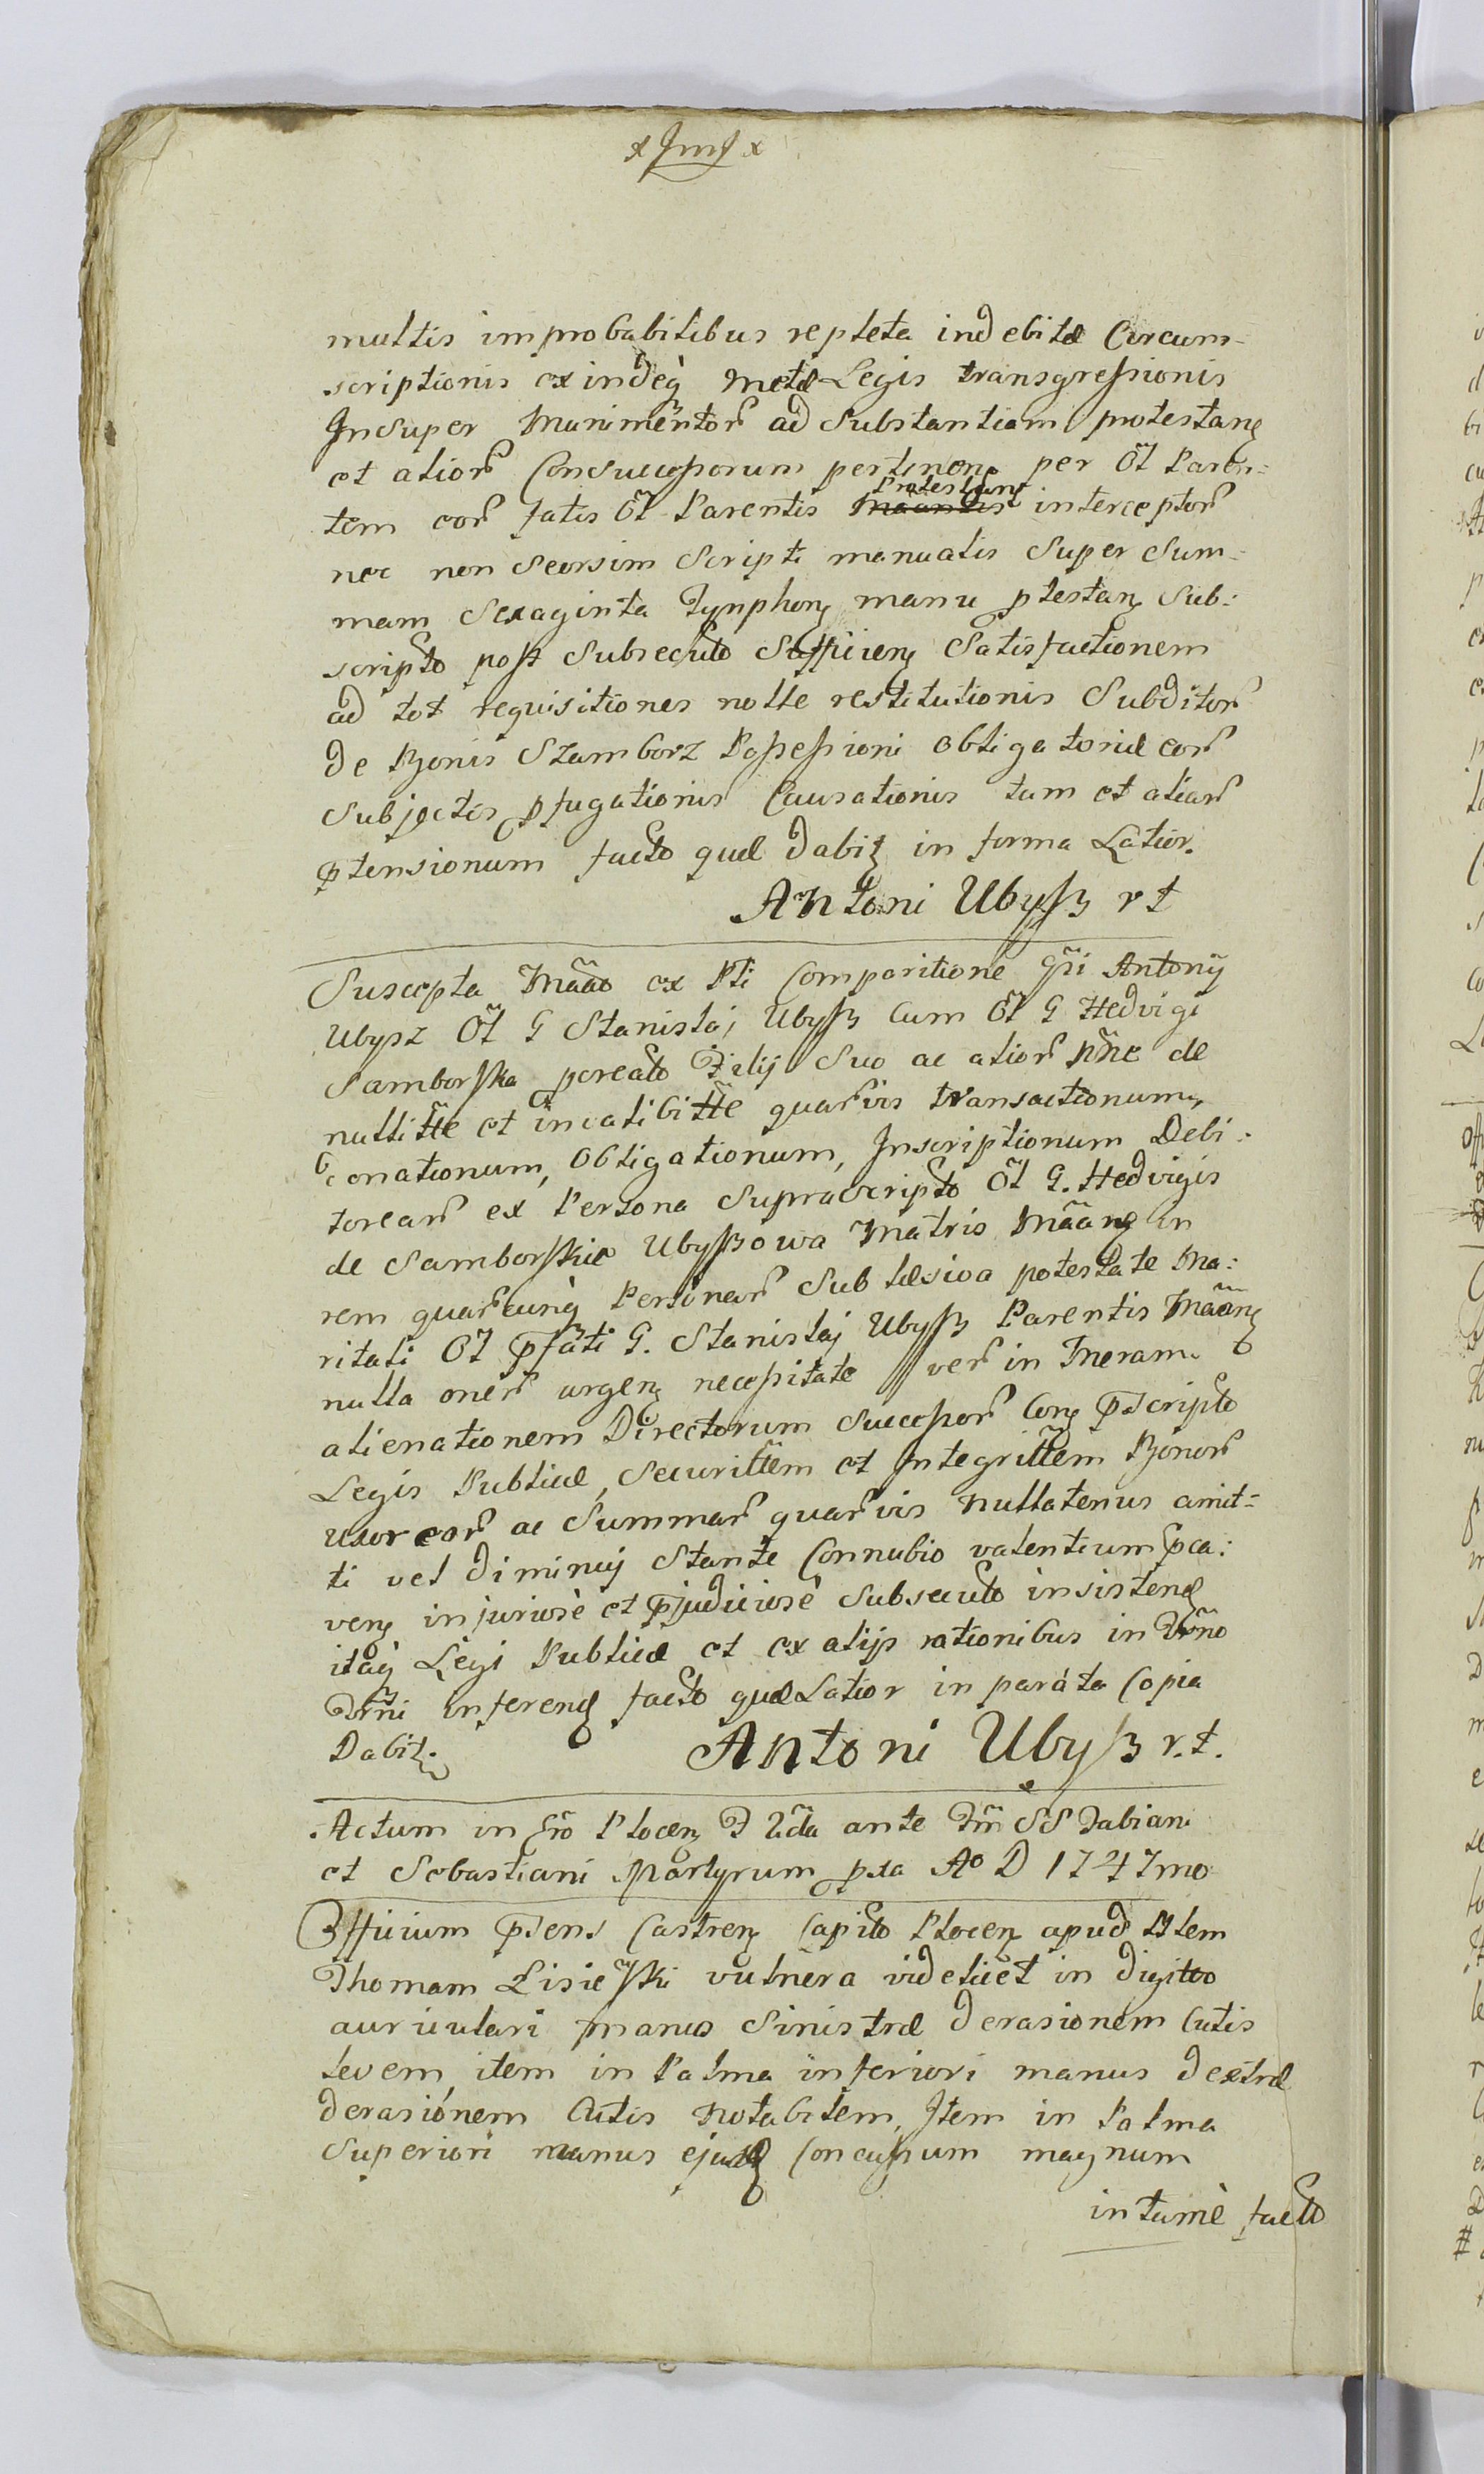 multis improbabilibus repleta indebitæ Circum-
scriptionis exindeq̀ metæ Legis transgreſsionis
Insuper Munimẽntor̃ ad Substantiam protestanȩ
et alior̃ Consucceſsorum pertinenȩ per Ol̃ Paren=
tem eor̃ fatis Ol̃ Parentis Protestanȩ interceptor̃
nec non Seorsim Scripti manualis Super Sum=
mam Sexaginta Tynphonȩ manu ptestanȩ Sub:
scripto post Subsecuto Sufficienȩ Satisfactionem
ad tot requisitiones nolle restitutionis Subditor̃
de Bonis Szamborz Poſseſsioni obligatoriæ eor̃
Subjectis pfugationis Causationis tum et aliar̃
ptensionum facto quæ dabiț in forma Latior.
Antoni Ubyſz r t
Suscepta Mãão ex Pti Comparitione Gñi Antonij
Ubysz Ol̃ G Stanislaj Ubyſz Cum Ol̃ G Hedvigi
Samborſka pcreato Filij Suo ac alior̃ nñe de
nullitt̃e et invalibitt̃e quar̃vis transactionum,
Donationum, Obligationum, Inscriptionum Debi:
torear̃ ex Persona Suprascripto Ol̃ G. Hedvigis
de Samborſkie Ubyſzowa Matris Mãanȩ in
rem quar̃cunq̀ Personar̃ Sub læsiva potestate Ma:
ritali Ol̃ pfati G. Stanislaj Ubyſz Parentis Mãanȩ
nulla oner̃ urgenȩ neceſsitate ver̃ in meram
alienationem Directorum Succeſsor̃ Conȩ pscripto
Legis Publicæ, Securitt̃em et Integritt̃em Bonor̃
uxoreor̃ ac Summar̃ quar̃vis nullatenus amit=
ti vel diminuj Stante Connubio valentium pca:
venȩ injuriosè et pjudiciosè Subsecuto insistenȩ
itaq̀ Legi Publicæ et ex alijs rationibus in Trño
Trñi inferenȩ facto quæ Latior in paráta Copia
Dabiț.
Antoni Ubyſz r.t.
Actum in Cro Plocenȩ F IIda ante Fm SS Fabiani
et Sebastiani Martyrum pxa Aº D 1747mo
Officium psens Castrenȩ Capito Plocenȩ apud Nlem
Thomam Lisieſki vulnera videlicet in digito
auriculari manus Sinistræ derasionem Cutis
levem, item in Palma inferiori manus dextræ
derasionem Cutis notabilem, Item in Palma
Superiori manus ejusdȩ Concuſsum magnum
intumè facto